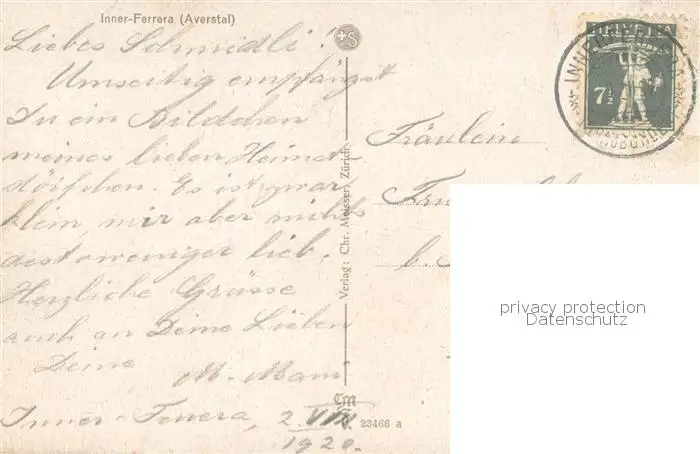 Inner-Ferrera (Averstal)
Liebes Schmidli!
Umseitig empfängst
Du ein Bildchen
meines lieben Heimat-
dörfchen. Es ist zwar
klein, mir aber nichts
destoweniger lieb.
Herzliche Grüsse
auch an Deine Lieben
Deine
M. Mani
Inner-Ferrera, 2. VIII.
1920.
Verlag: Chr. Meisser, Zürich
23466 a
HELVETIA
7½
INNER-FERRERA
Fräulein
b.
privacy protection
Datenschutz